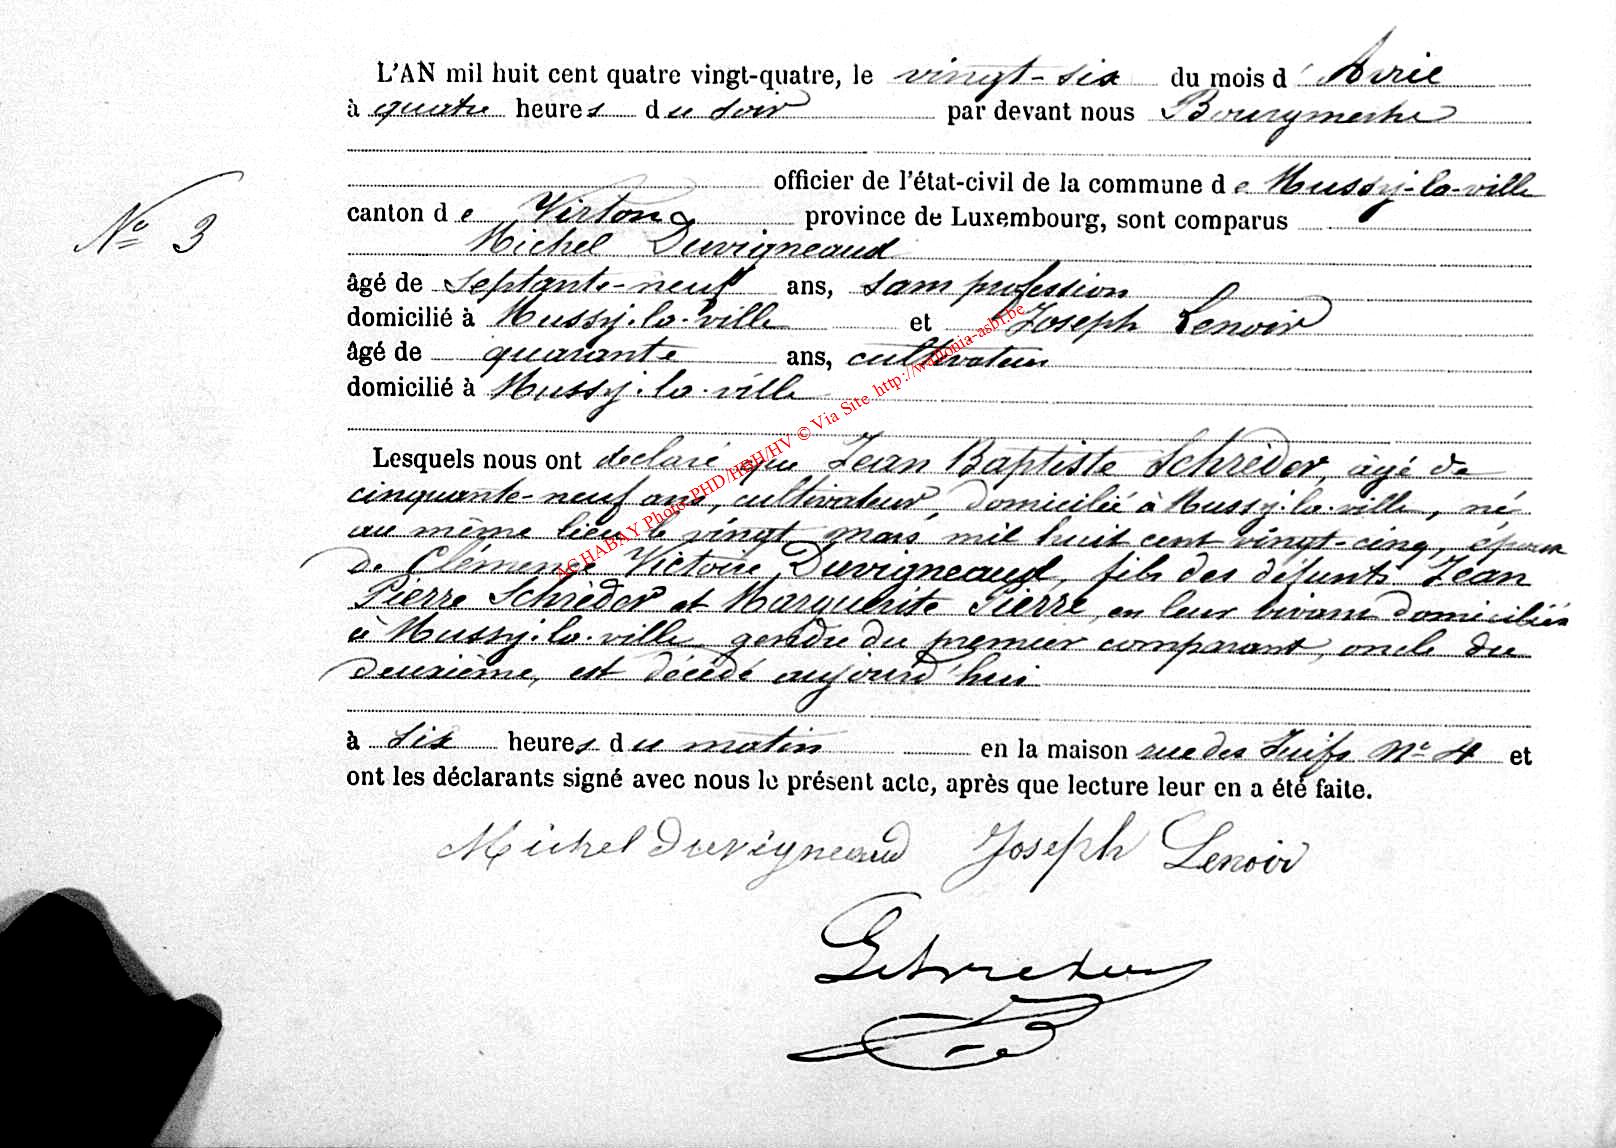 L'AN mil huit cent quatre vingt-quatre, le vingt-six du mois d' Avril
à quatre heures du soir par devant nous Bourgmestre
officier de l'état-civil de la commune de Mussy-la-ville
canton de Virton province de Luxembourg, sont comparus
N° 3
Michel Duvigneaud
âgé de septante-neuf ans, sans profession
domicilié à Mussy-la-ville et Joseph Lenoir
âgé de quarante ans, cultivateur
domicilié à Mussy-la-ville
Lesquels nous ont declaré que Jean Baptiste Schrèder, âgé de
cinquante-neuf ans, cultivateur, domicilié à Mussy-la-ville, né
au même lieu le vingt mars mil huit cent vingt-cinq, époux
de Clémence Victoire Duvigneaud, fils des défunts Jean
Pierre Schrèder et Marguerite Pierre, en leur vivant domiciliés
à Mussy-la-ville gendre du premier comparant, oncle du
deuxième, est décédé aujourd'hui
à six heures du matin en la maison rue des Juifs N° 4 et
ont les déclarants signé avec nous le présent acte, après que lecture leur en a été faite.
Michel Duvigneaud Joseph Lenoir
ACHABAY Photo PHD/HBH/HV © Via Site http://wallonia-asbl.be